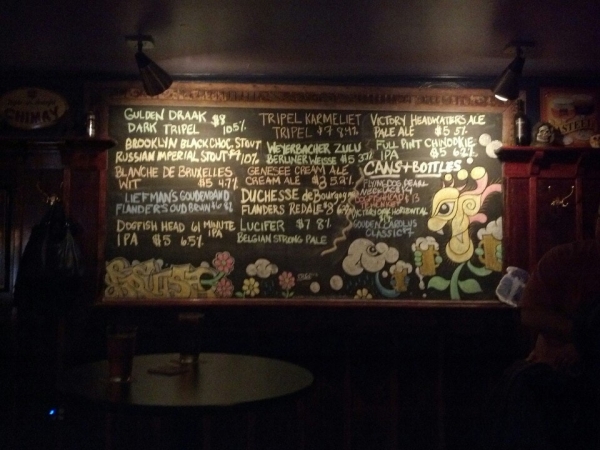 GULDEN DRAAK $8
DARK TRIPEL 10.5%
BROOKLYN BLACK CHOC. STOUT
RUSSIAN IMPERIAL STOUT $7 10%
BLANCHE DE BRUXELLES
WIT $5 4.7%
LIEFMAN'S GOUDENBAND
FLANDERS OUD BRUIN
DOGFISH HEAD 61 MINUTE IPA
IPA $5 6.5%
TRIPEL KARMELIET
TRIPEL $7 8.4%
WEYERBACHER ZULU
BERLINER WEISSE $5 3%
GENESEE CREAM ALE
CREAM ALE $3 5.2%
DUCHESSE de Bourgogne
FLANDERS RED ALE $8
LUCIFER $7 8%
BELGIAN STRONG PALE
VICTORY HEADWATERS ALE
PALE ALE $5 5%
FULL PINT CHINOOKIE
IPA $5 6.2%
CANS + BOTTLES
FLYING DOG PEARL
VICTORY DARK HORIZONTAL
GOUDEN CAROLUS
CLASSIC $7
CHIMAY